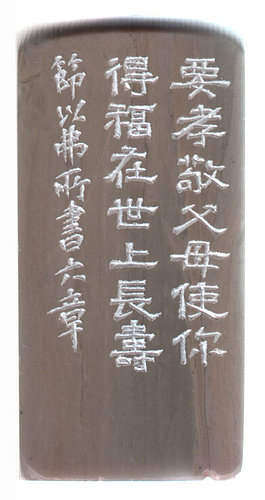 要孝敬父母使你
得福在世上長壽
節以弗所書六章